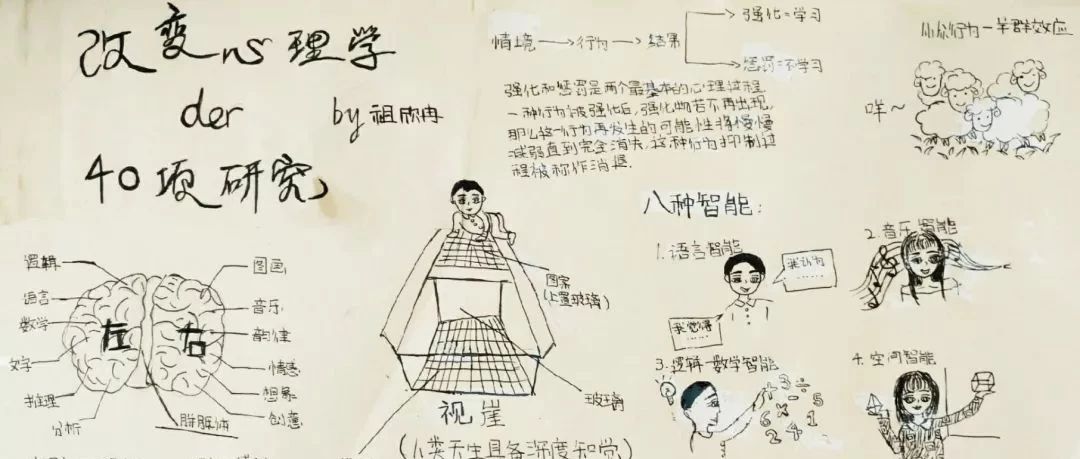 改变心理学
der
by 祖欣冉
40项研究
情境→行为→结果
强化=学习
惩罚=不学习
强化和惩罚是两个最基本的心理过程
一种行为被强化后，强化物若不再出现，
那么这一行为再发生的可能性将慢慢
减弱直到完全消失，这种行为抑制过
程被称作消退.
从众行为—羊群效应
咩~
逻辑
语言
数学
文字
推理
分析
左
右
图画
音乐
韵律
情感
想象
创意
胼胝体
图案
(上置玻璃)
玻璃
视崖
(人类天生具备深度知觉)
八种智能:
1.语言智能
我认为
......
我觉得
......
2.音乐智能
3.逻辑-数学智能
+ 3 ÷
6 × - 5
2 4 1
4.空间智能